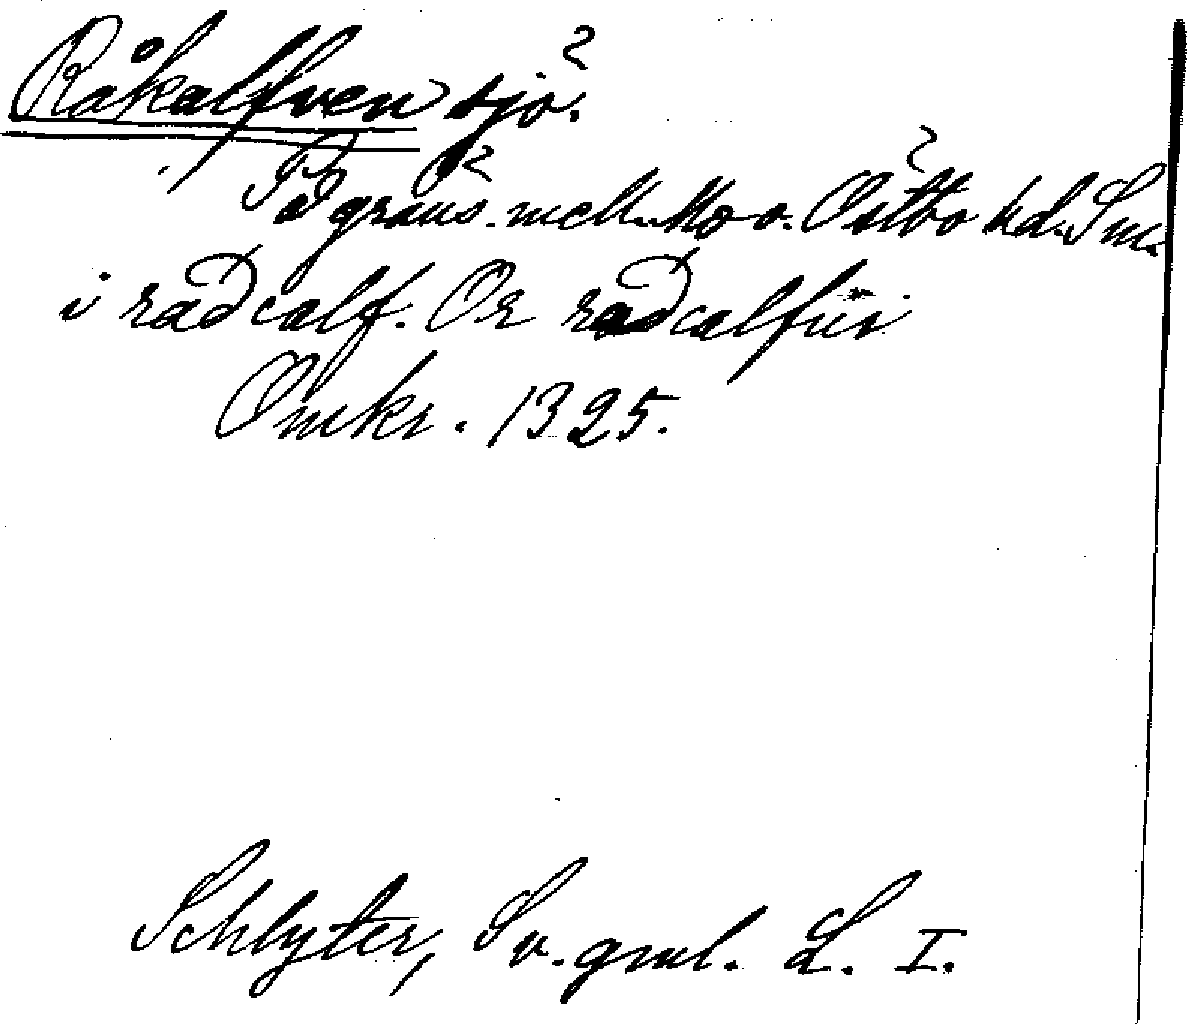 Råkalfven sjö.
På gräns. mell. Mo o. Östbo hd. Sm.
i raðcalf. Or raðcalfui
Omkr. 1325.
Schlyter, Sv. gml. L. I.